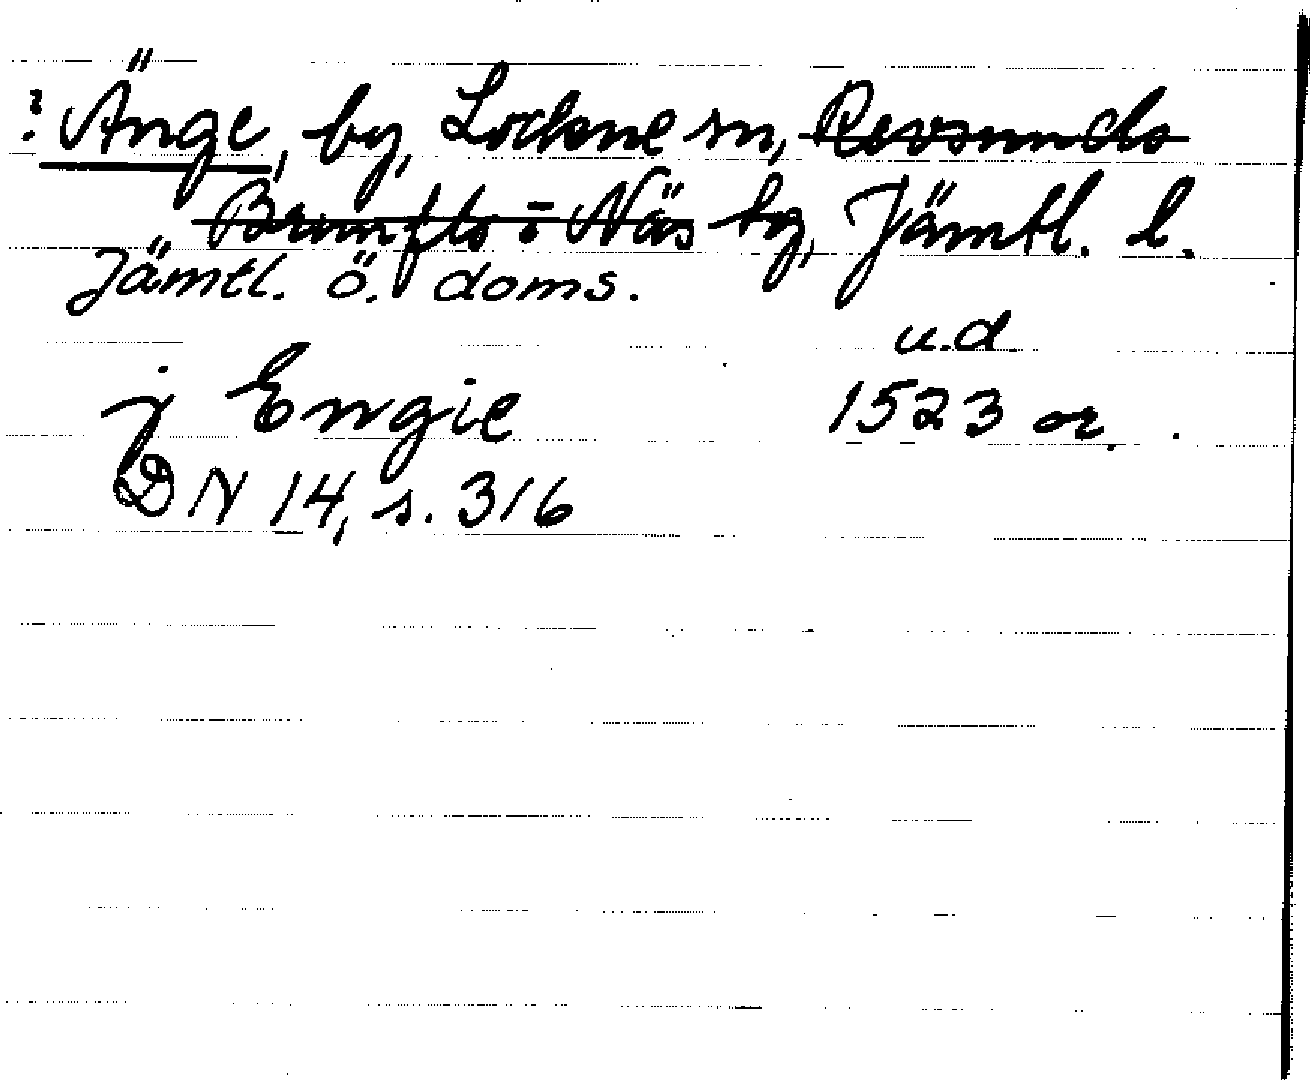 ? Änge, by, Lockne sn, Revsunds
Brunflo o Näs tg, Jämtl. l.
Jämtl. ö. doms.
u.d
j Engie 1523 or.
DN 14, s. 316